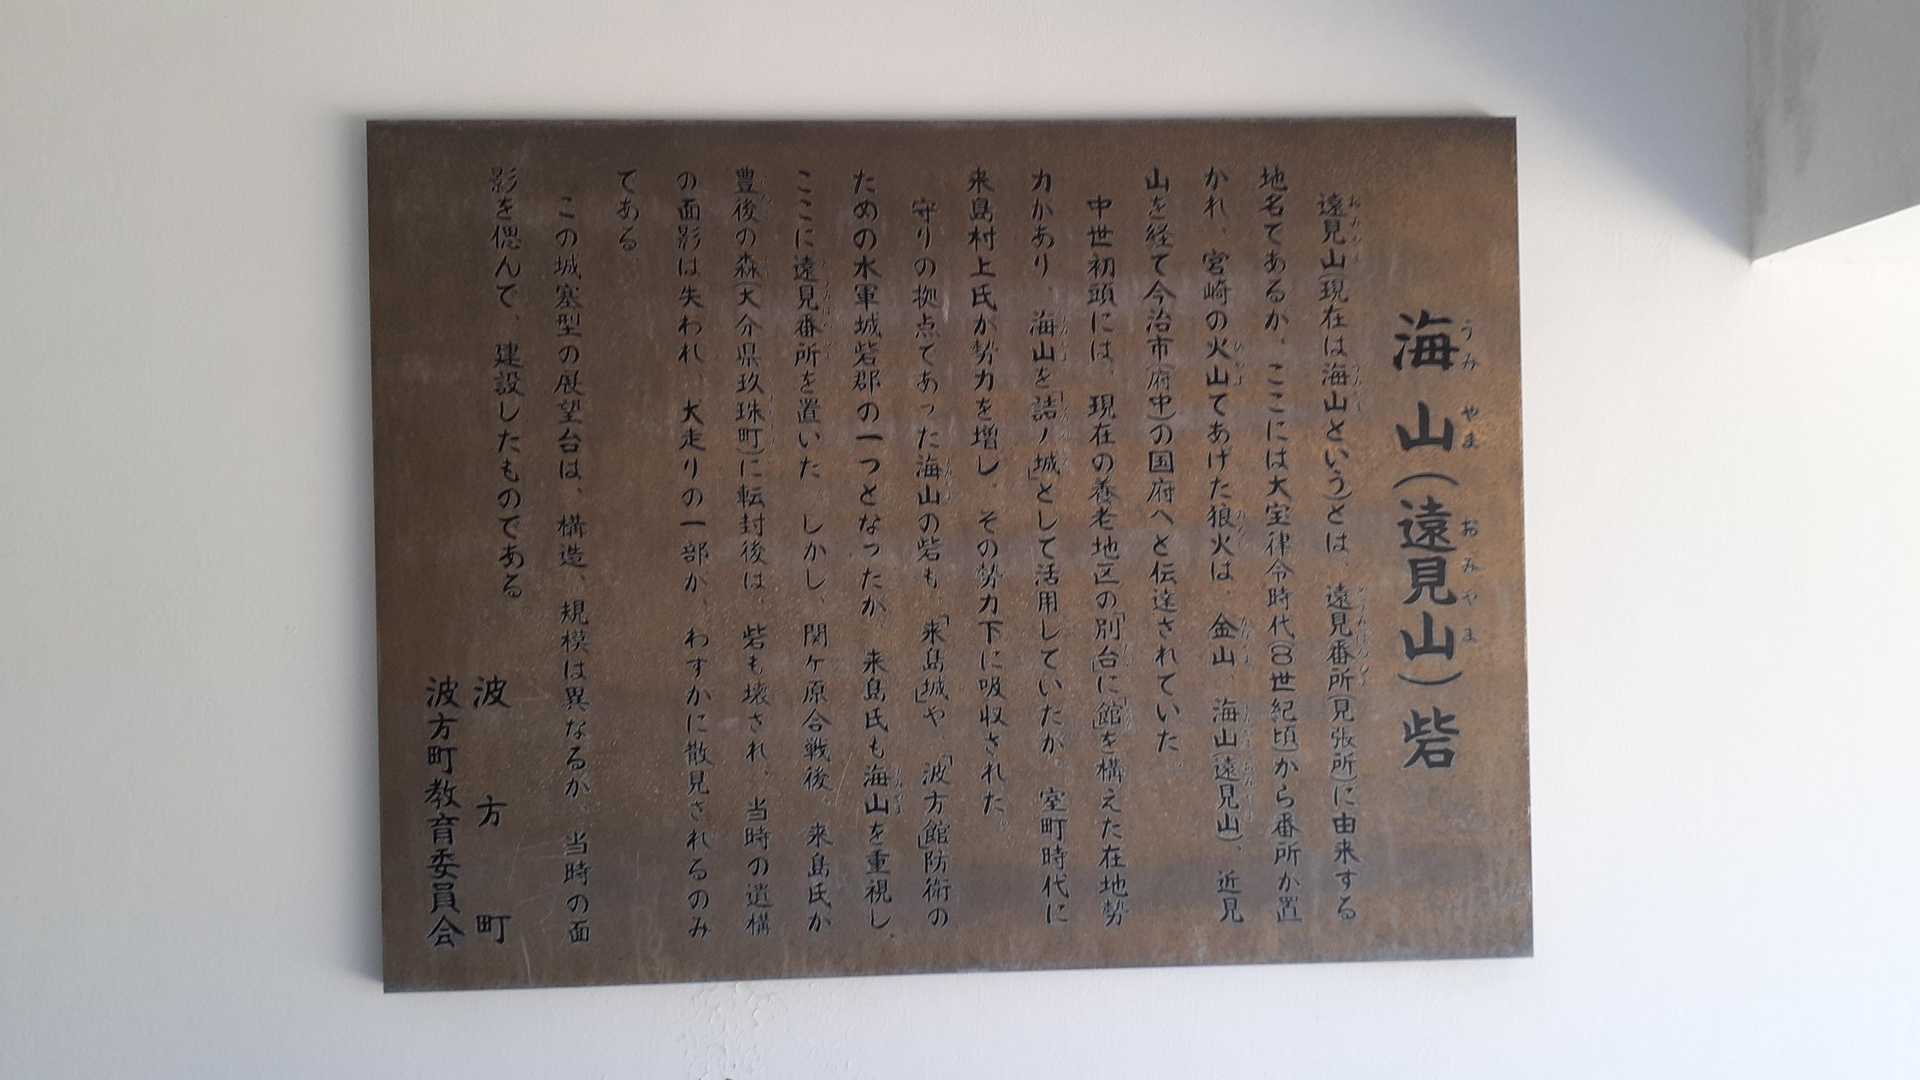 海山(遠見山)砦
遠見山(現在は海山という)とは、遠見番所(見張所)に由来する
地名てあるか、ここには大宝律令時代(8世紀頃)から番所か置
かれ、宮崎の火山てあげた狼火は、金山、海山(遠見山)、近見
山を経て今治市(府中)の国府へと伝達されていた。
中世初頭には、現在の養老地区の「別台」に「館」を構えた在地勢
力かあり、海山を「詰ノ城」として活用していたが、室町時代に
来島村上氏が勢力を増し、その勢力下に吸収された。
守りの拠点てあった海山の砦も、「来島城」や、「波方館」防衛の
ための水軍城砦郡の一つとなったが、来島氏も海山を重視し、
ここに遠見番所を置いた しかし、関ヶ原合戦後、来島氏か
豊後の森(大分県玖珠町)に転封後は、砦も壊され、当時の遺構
の面影は失われ、犬走りの一部か、わすかに散見されるのみ
てある
この城塞型の展望台は、構造、規模は異なるか、当時の面
影を偲んで、建設したものである
波方町
波方町教育委員会